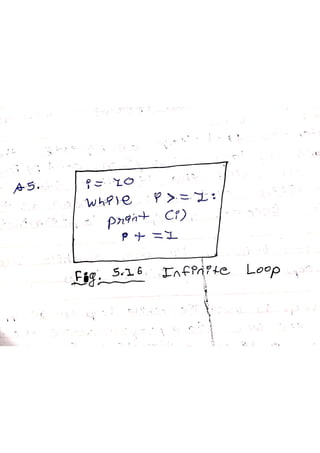 A5.
i = 10
while i >= 1:
print (i)
i + = 1
Fig. 5.16 Infinite Loop